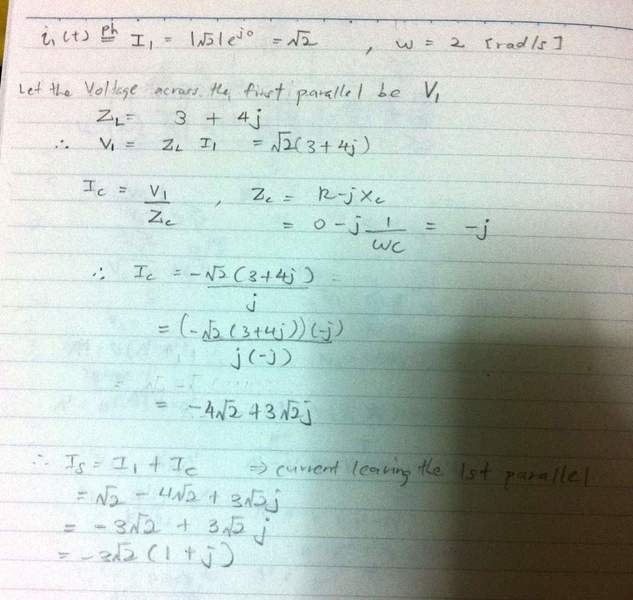 i₁(t) ph= I₁ = |√2|e^{j0} = √2 , ω = 2 [rad/s]
Let the Voltage across the first parallel be V₁
Z_L = 3 + 4j
∴ V₁ = Z_L I₁ = √2(3+4j)
I_c = V₁/Z_c , Z_c = R-jX_c
= 0 - j 1/ωC = -j
∴ I_c = -√2(3+4j)/j =
= (-√2(3+4j))(-j)/j(-j)
= -4√2 + 3√2j
∴ I_s = I₁ + I_c ⇒ current leaving the 1st parallel
= √2 - 4√2 + 3√2j
= -3√2 + 3√2 j
= -3√2 (1 + j)